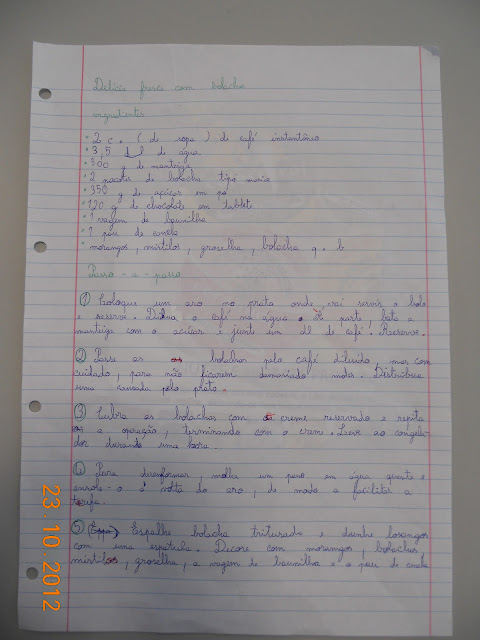 Delícia fresca com bolacha
ingredientes
• 2 c. ( de sopa ) de café instantâneo
• 3,5 dl de água
• 300 g de manteiga
• 2 pacotes de bolacha tipo maria
• 350 g de açúcar em pó
• 120 g de chocolate em tablete
• 1 vagem de baunilha
• 1 pau de canela
• morangos, mirtilos, groselha, bolacha q. b
Passo - a - passo
① Coloque um aro no prato onde vai servir o bolo
e reserve. Dilua o café na água. À parte, bata a
manteiga com o açúcar e junte um dl de café. Reserve.
② Passe as bolachas pelo café diluído, mas com
cuidado, para não ficarem demasiado moles. Distribua
uma camada pelo prato.
③ Cubra as bolachas com o creme reservado e repita
a operação, terminando com o creme. Leve ao congela-
dor durante uma hora.
④ Para desenformar, molhe um pano em água quente e
enrole-o à volta do aro, de modo a facilitar a
tarefa.
⑤ Espalhe bolacha triturada e desenhe losangos
com uma espátula. Decore com morangos, bolachas,
mirtilos, groselha, a vagem de baunilha e o pau de canela
23.10.2012